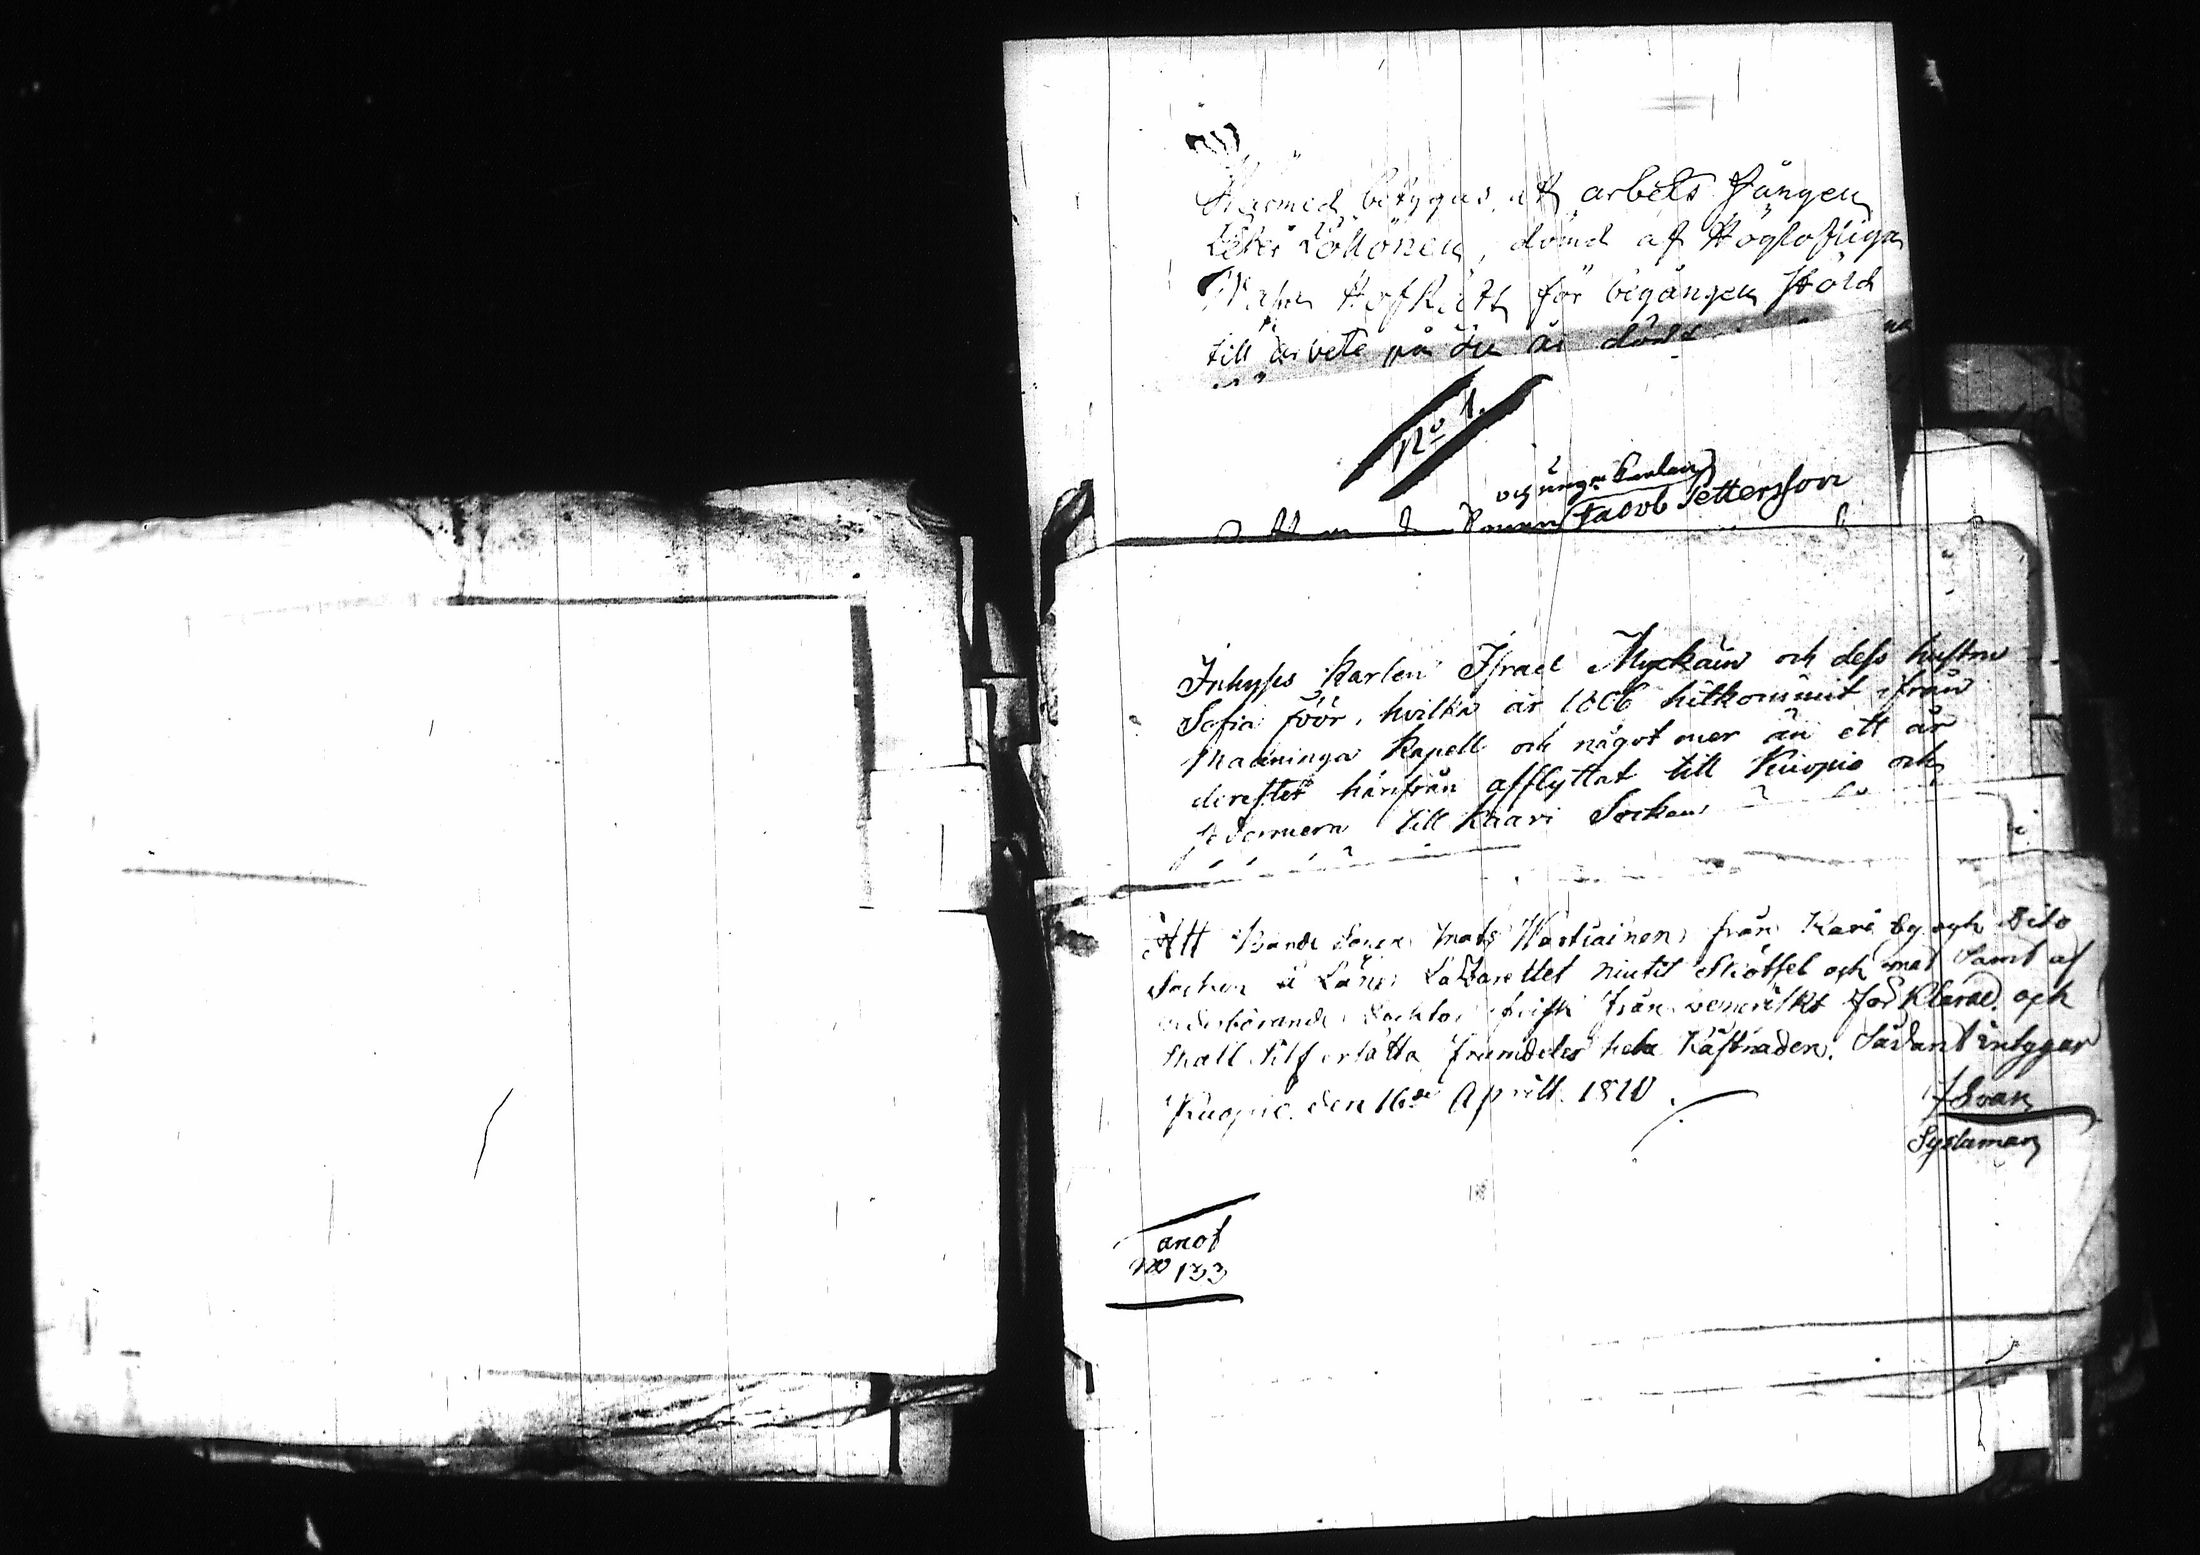 Härmed betygas, att arbets fången
Peter Pöllönen, dömd af Höglofliga
Wasa HofRätt för begången stöld
till arbete på
No 1.
och unga Karlen
Jacob Pettersson
Inhyses Karlen Israel Myckäin och dess hustru
Sofia Föör, hvilka år 1806 hitkommit ifrån
Maaninga Kapell och något mer än ett år
derefter härifrån afflyttat till Kuopio och
sedermera till Kaavi Socken
Att Bonde Sonen Mats Wartiainen från Kavi by och dito
Socken å Läns Lazarettet niutit Skiötsel och mat samt af
vederbörande Docktor frisk från veneriskt förklarad och
skall sielf ersätta framdeles hela Kåstnaden. Sådant intygar
Kuopio den 16de Aprill 1810.
J Svan
Sysslaman
anot
No 133